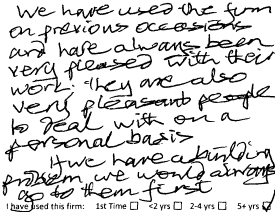 We have used the firm
on previous occasions
and have always been
very pleased with their
work. They are also
very pleasant people
to deal with on a
personal basis
If we have a building
problem we would always
go to them first
I have used this firm: 1st Time ☐ <2 yrs ☐ 2-4 yrs ☐ 5+ yrs ☑